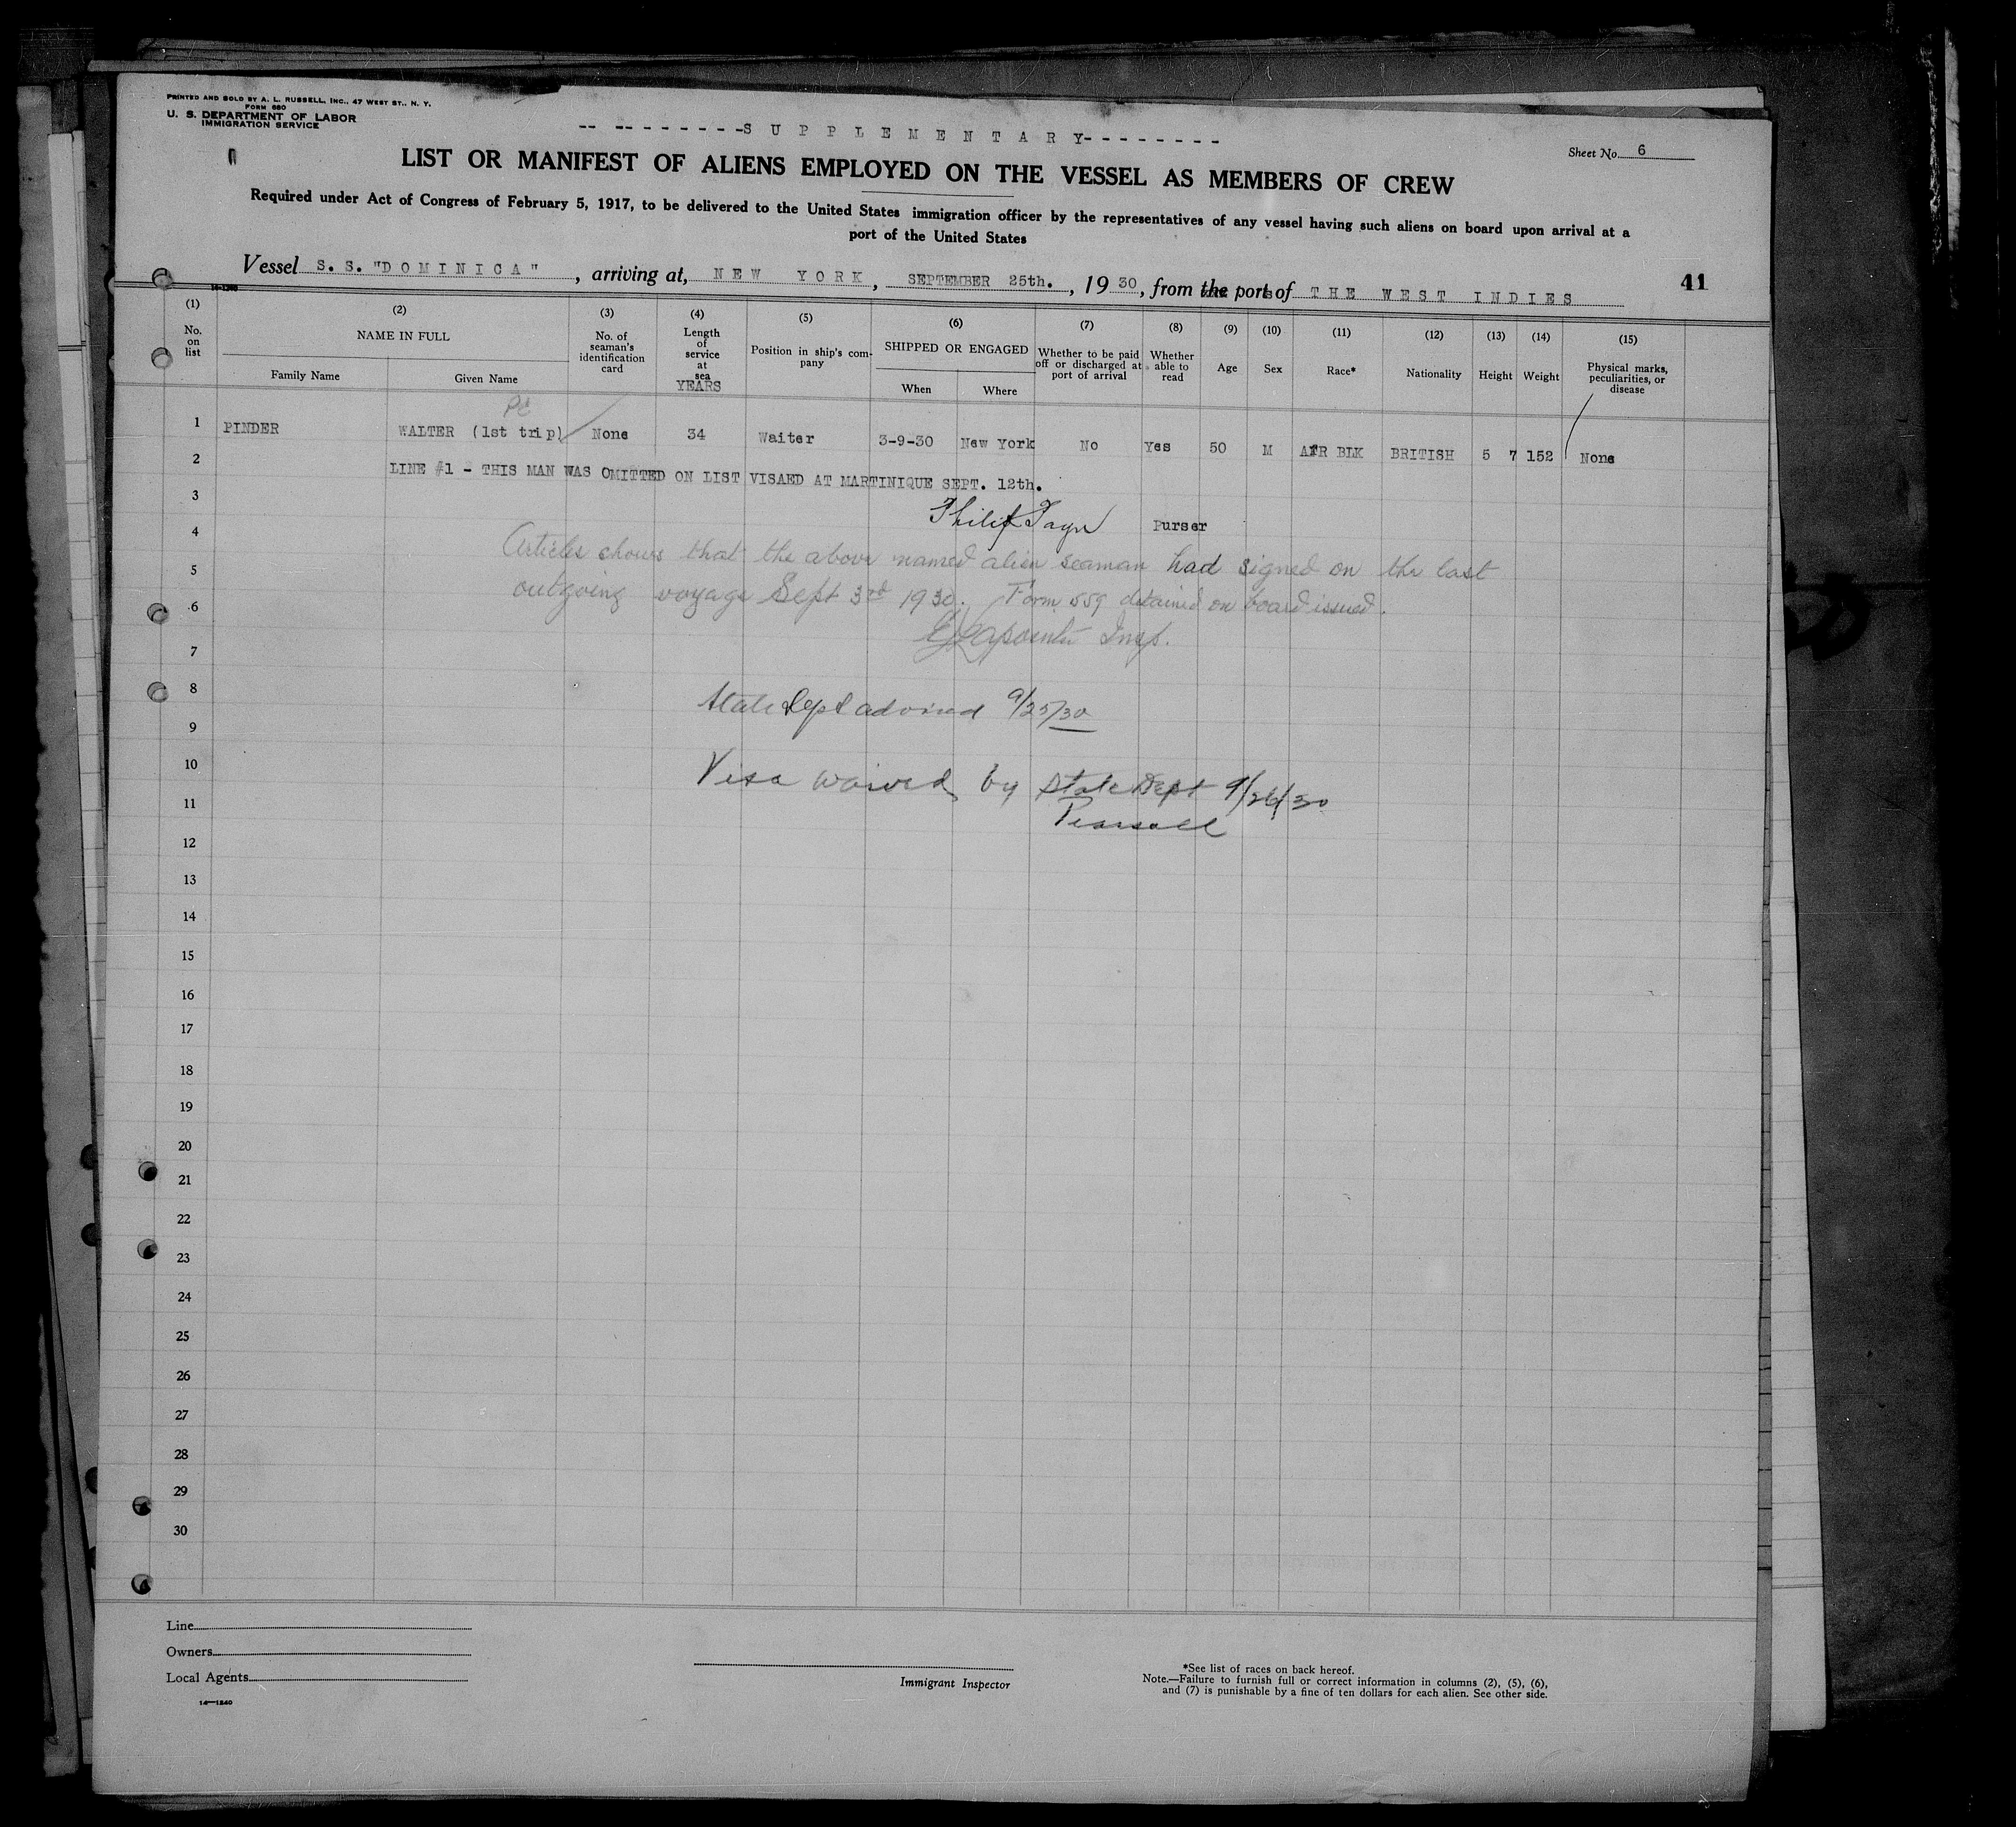 PRINTED AND SOLD BY A. L. RUSSELL, INC., 47 WEST ST., N. Y.
FORM 680
U. S. DEPARTMENT OF LABOR
IMMIGRATION SERVICE
-- --------SUPPLEMENTARY--------
Sheet No. 6
LIST OR MANIFEST OF ALIENS EMPLOYED ON THE VESSEL AS MEMBERS OF CREW
Required under Act of Congress of February 5, 1917, to be delivered to the United States immigration officer by the representatives of any vessel having such aliens on board upon arrival at a
port of the United States
Vessel S. S. "DOMINICA", arriving at, NEW YORK, SEPTEMBER 25th., 1930, from the ports of THE WEST INDIES
41
14-1240
(1) (2) (3) (4) (5) (6) (7) (8) (9) (10) (11) (12) (13) (14) (15)
No. on list
NAME IN FULL
Family Name
Given Name
No. of seaman's identification card
Length of service at sea
YEARS
Position in ship's company
SHIPPED OR ENGAGED
When
Where
Whether to be paid off or discharged at port of arrival
Whether able to read
Age
Sex
Race*
Nationality
Height
Weight
Physical marks, peculiarities, or disease
1 PINDER WALTER (1st trip) None 34 Waiter 3-9-30 New York No Yes 50 M AFR BLK BRITISH 5 7 152 None
2 LINE #1 - THIS MAN WAS OMITTED ON LIST VISAED AT MARTINIQUE SEPT. 12th.
3
4 Purser
Articles shows that the above named alien seaman had signed on the last
5
outgoing voyage Sept 3rd 1930. Form 559 detained on board issued.
6
Lapointe Insp.
7
8
State Dept advised 9/25/30
9
10
Visa waived by State Dept 9/26/30
11
Pearsall
12
13
14
15
16
17
18
19
20
21
22
23
24
25
26
27
28
29
30
Line
Owners
Local Agents
14—1240
Immigrant Inspector
*See list of races on back hereof.
Note.—Failure to furnish full or correct information in columns (2), (5), (6),
and (7) is punishable by a fine of ten dollars for each alien. See other side.